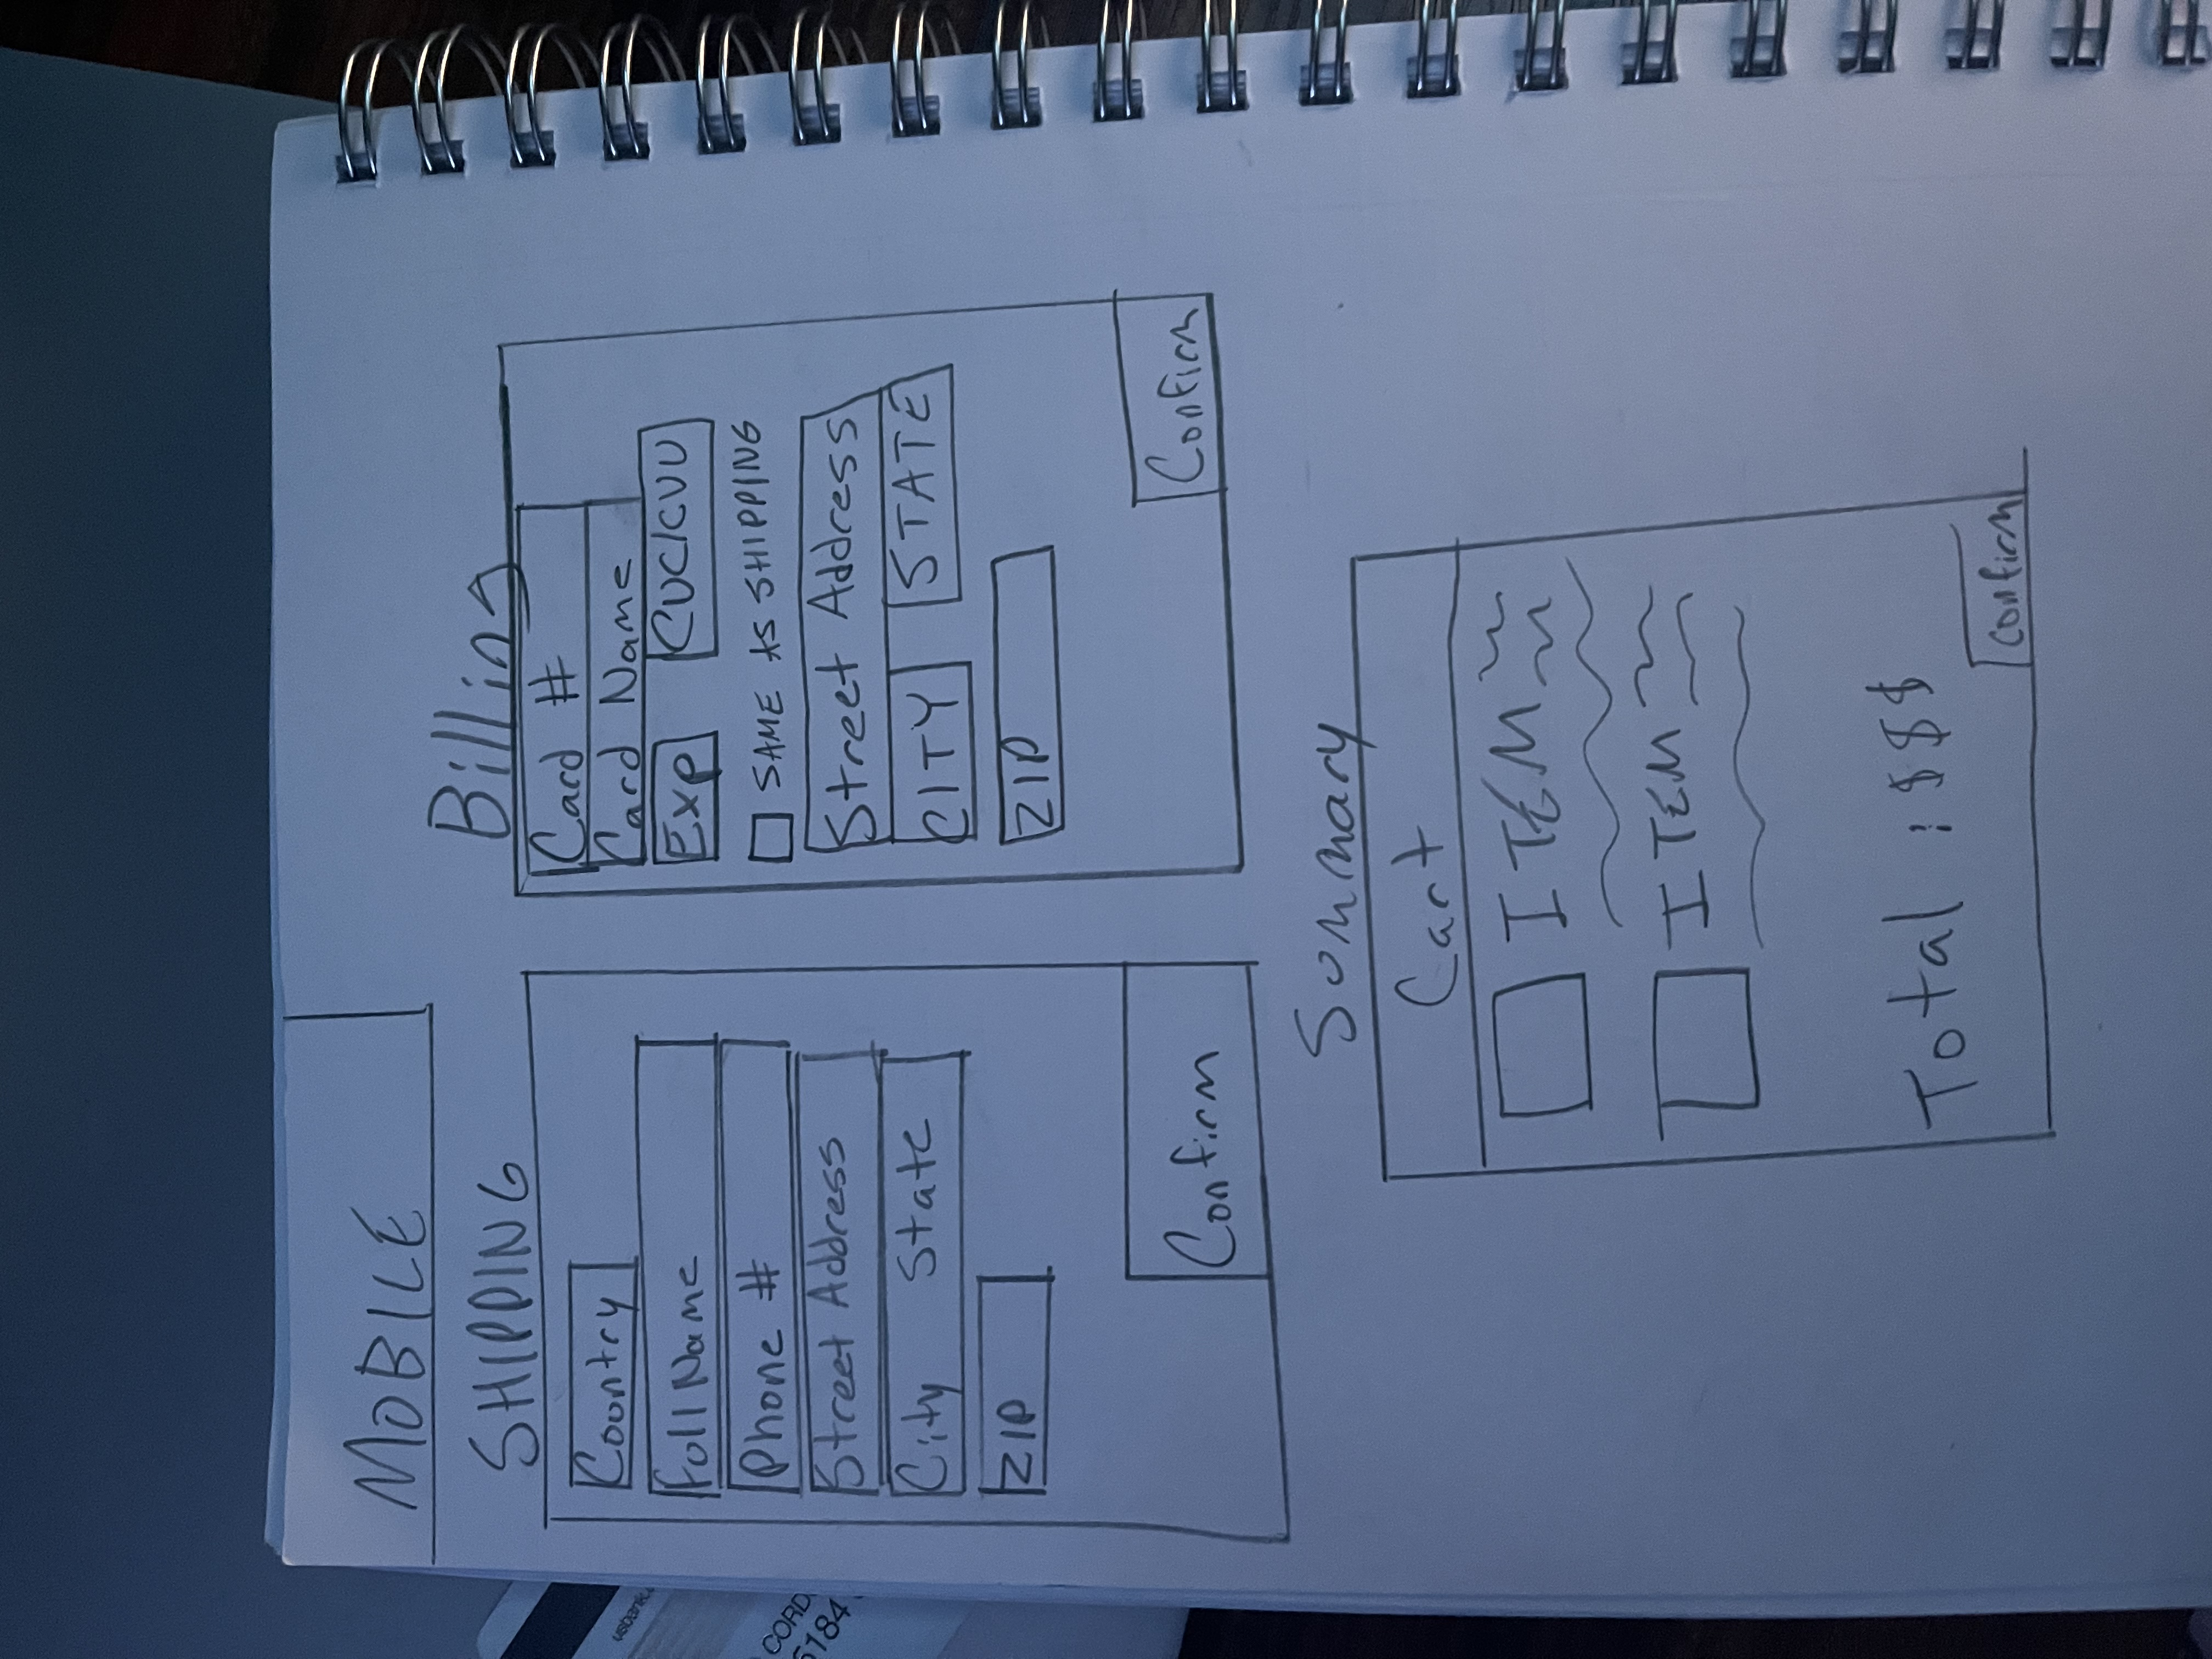 MOBILE
SHIPPING
Country
Full Name
Phone #
Street Address
City State
ZIP
Confirm
Billing
Card #
Card Name
Exp CVC/CVV
SAME AS SHIPPING
Street Address
CITY STATE
ZIP
Confirm
Summary
Cart
ITEM
ITEM
Total : $$$
Confirm
usbank
CORD
5184